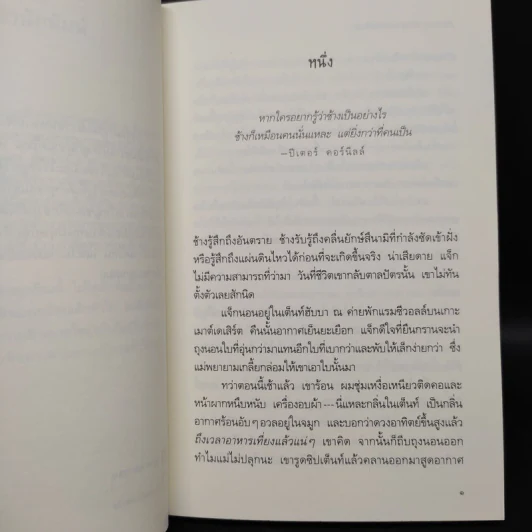 หนึ่ง
หากใครอยากรู้ว่าช้างเป็นอย่างไร
ช้างก็เหมือนคนนั่นแหละ แต่ยิ่งกว่าที่คนเป็น
—ปีเตอร์ คอร์นิลล์
ช้างรู้สึกถึงอันตราย ช้างรับรู้ถึงคลื่นยักษ์สึนามิที่กำลังซัดเข้าฝั่ง
หรือรู้สึกถึงแผ่นดินไหวได้ก่อนที่จะเกิดขึ้นจริง น่าเสียดาย แจ็ก
ไม่มีความสามารถที่ว่ามา วันที่ชีวิตเขากลับตาลปัตรนั้น เขาไม่ทัน
ตั้งตัวเลยสักนิด
แจ็กนอนอยู่ในเต็นท์ฮับบา ณ ค่ายพักแรมซีวอลล์บนเกาะ
เมาต์เดเสิร์ต คืนนั้นอากาศเย็นยะเยือก แจ็กดีใจที่ยืนกรานจะนำ
ถุงนอนใบที่อุ่นกว่ามาแทนอีกใบที่เบากว่าและพับให้เล็กง่ายกว่า ซึ่ง
แม่พยายามเกลี้ยกล่อมให้เขาเอาใบนั้นมา
ทว่าตอนนี้เช้าแล้ว เขาร้อน ผมชุ่มเหงื่อเหนียวติดคอและ
หน้าผากหนึบหนับ เครื่องอบผ้า—นี่แหละกลิ่นในเต็นท์ เป็นกลิ่น
อากาศร้อนอับๆ อวลอยู่ในจมูก และบอกว่าดวงอาทิตย์ขึ้นสูงแล้ว
ถึงเวลาอาหารเที่ยงแล้วแน่ๆ เขาคิด จากนั้นก็ถีบถุงนอนออก
ทำไมแม่ไม่ปลุกนะ เขารูดซิปเต็นท์แล้วคลานออกมาสูดอากาศ
๑